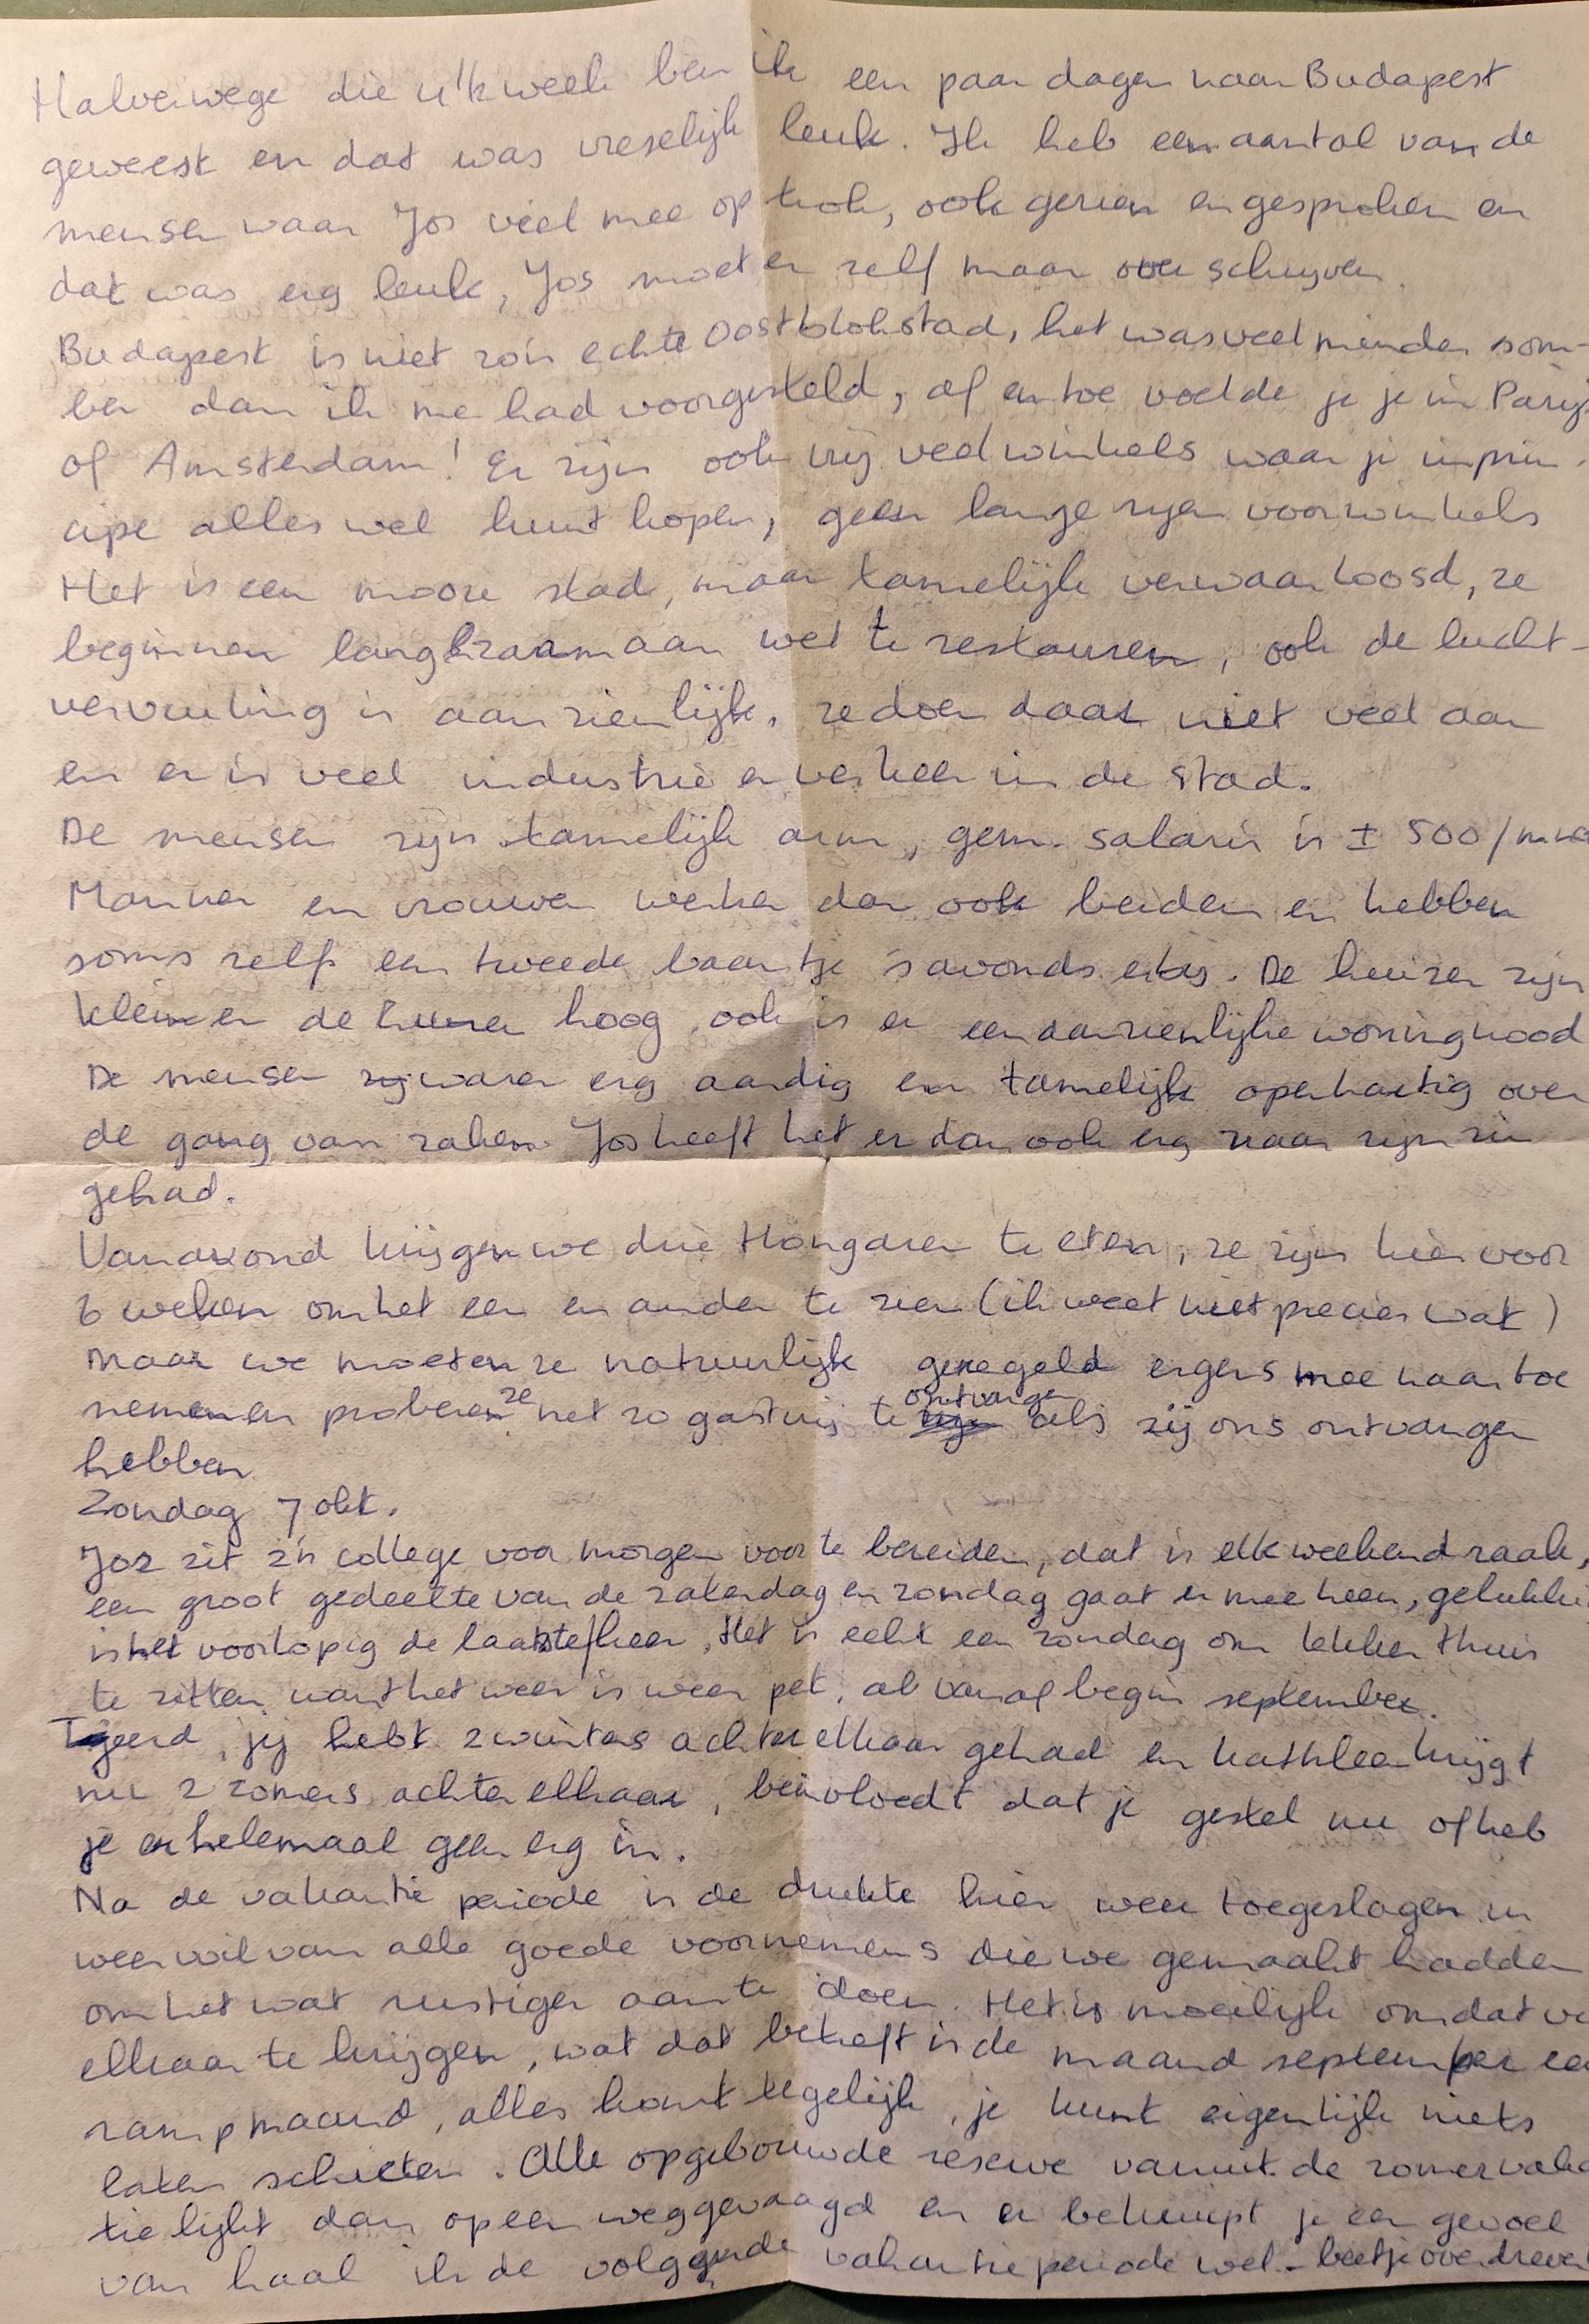 Halverwege die u'k week ben ik een paar dagen naar Budapest
geweest en dat was vreselijk leuk. Ik heb een aantal van de
mensen waar Jos veel mee op trok, ook gezien en gesproken en
dat was erg leuk, Jos moet er zelf maar over schrijven.
Budapest is niet zo'n echte Oostblokstad, het was veel minder som-
ber dan ik me had voorgesteld, af en toe voelde je je in Parijs
of Amsterdam! Er zijn ook vrij veel winkels waar je in prin-
cipe alles wel kunt kopen, geen lange rijen voor winkels
Het is een mooie stad, maar tamelijk verwaarloosd, ze
beginnen langzaam aan wel te restauren, ook de lucht-
vervuiling is aanzienlijk, ze doen daar niet veel aan
en er is veel industrie en verkeer in de stad.
De mensen zijn tamelijk arm, gem. salaris is ± 500/mnd
Mannen en vrouwen werken dan ook beiden en hebben
soms zelfs een tweede baantje 's avonds erbij. De huizen zijn
klein en de huren hoog, ook is er een aanzienlijke woningnood
De mensen zij waren erg aardig en tamelijk openhartig over
de gang van zaken. Jos heeft het er dan ook erg naar zijn zin
gehad.
Vanavond krijgen we drie Hongaren te eten, ze zijn hier voor
6 weken om het een en ander te zien (ik weet niet precies wat)
maar we moeten ze natuurlijk geregeld ergens mee naar toe
nemen en proberen ze net zo gastvrij te ontvangen als zij ons ontvangen
hebben
Zondag 7 okt.
Jos zit z'n college voor morgen voor te bereiden, dat is elk weekend raak,
een groot gedeelte van de zaterdag en zondag gaat er mee heen, gelukkig
is het voorlopig de laatste keer. Het is echt een zondag om lekker thuis
te zitten want het weer is weer pet, al vanaf begin september.
Tjeerd, jij hebt 2 winters achter elkaar gehad en Kathleen krijgt
nu 2 zomers achter elkaar, beinvloedt dat je gestel nu of heb
je er helemaal geen erg in.
Na de vakantie periode is de drukte hier weer toegeslagen in
weerwil van alle goede voornemens die we gemaakt hadden
om het wat rustiger aan te doen. Het is moeilijk om dat voor
elkaar te krijgen, wat dat betreft is de maand september een
rampmaand, alles komt tegelijk, je kunt eigenlijk niets
laten schieten. Alle opgebouwde reserve vanuit de zomervakan
tie lijkt dan opeen weggevaagd en er bekruipt je een gevoel
van haal ik de volgende vakantieperiode wel - beetje overdreven